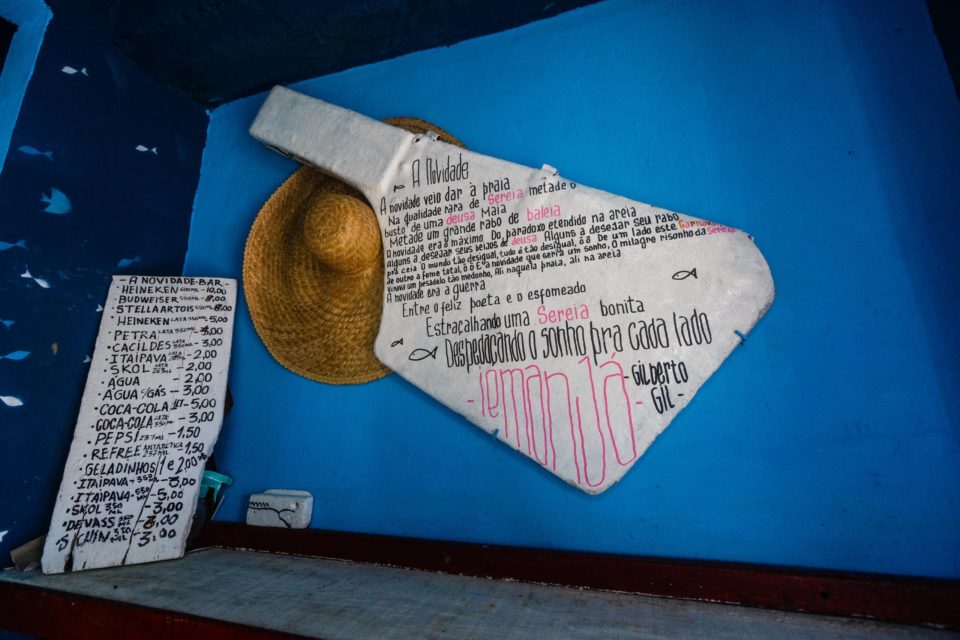 - A NOVIDADE-BAR -
• HEINEKEN 600ML - 10,00
• BUDWEISER 550ML - 8,00
• STELLA ARTOIS 550ML - 8,00
• HEINEKEN LATA 350ML 5,00
• PETRA LATA 350ML - 3,00
• CACILDES LATA 350ML - 3,00
• ITAIPAVA LATA - 2,00
• SKOL LATA - 2,00
• ÁGUA - 2,00
• ÁGUA C/GÁS - 3,00
• COCA-COLA 1LT - 5,00
• COCA-COLA LATA 350ML - 3,00
• PEPSI 237ML - 1,50
• REFREE ANTARCTICA 237ML 1,50
• GELADINHOS 1 e 2,00
• ITAIPAVA - 350ML - 3,00
• ITAIPAVA - 5,00
• SKOL 350ML - 3,00
• DEVASS 350ML - 3,00
• SCHIN 350ML - 3,00
A Novidade
A novidade veio dar à praia
Na qualidade rara de Sereia metade o
busto de uma deusa Maia
Metade um grande rabo de baleia
A novidade era o máximo Do paradoxo etendido na areia
Alguns a desejar seus beijos de deusa Alguns a desejar seu rabo
prá ceia O mundo tão desigual, tudo é tão desigual, ô ô De um lado este Carnaval
de outro a fome total, ô ô E a novidade que seria um sonho, o milagre risonho da Sereia
Virava um pesadelo tão medonho, Ali naquela praia, ali na areia
A novidade era a guerra
Entre o feliz poeta e o esfomeado
Estraçalhando uma Sereia bonita
Despedaçando o sonho prá cada lado
- iemanJá -
- Gilberto
GIL -